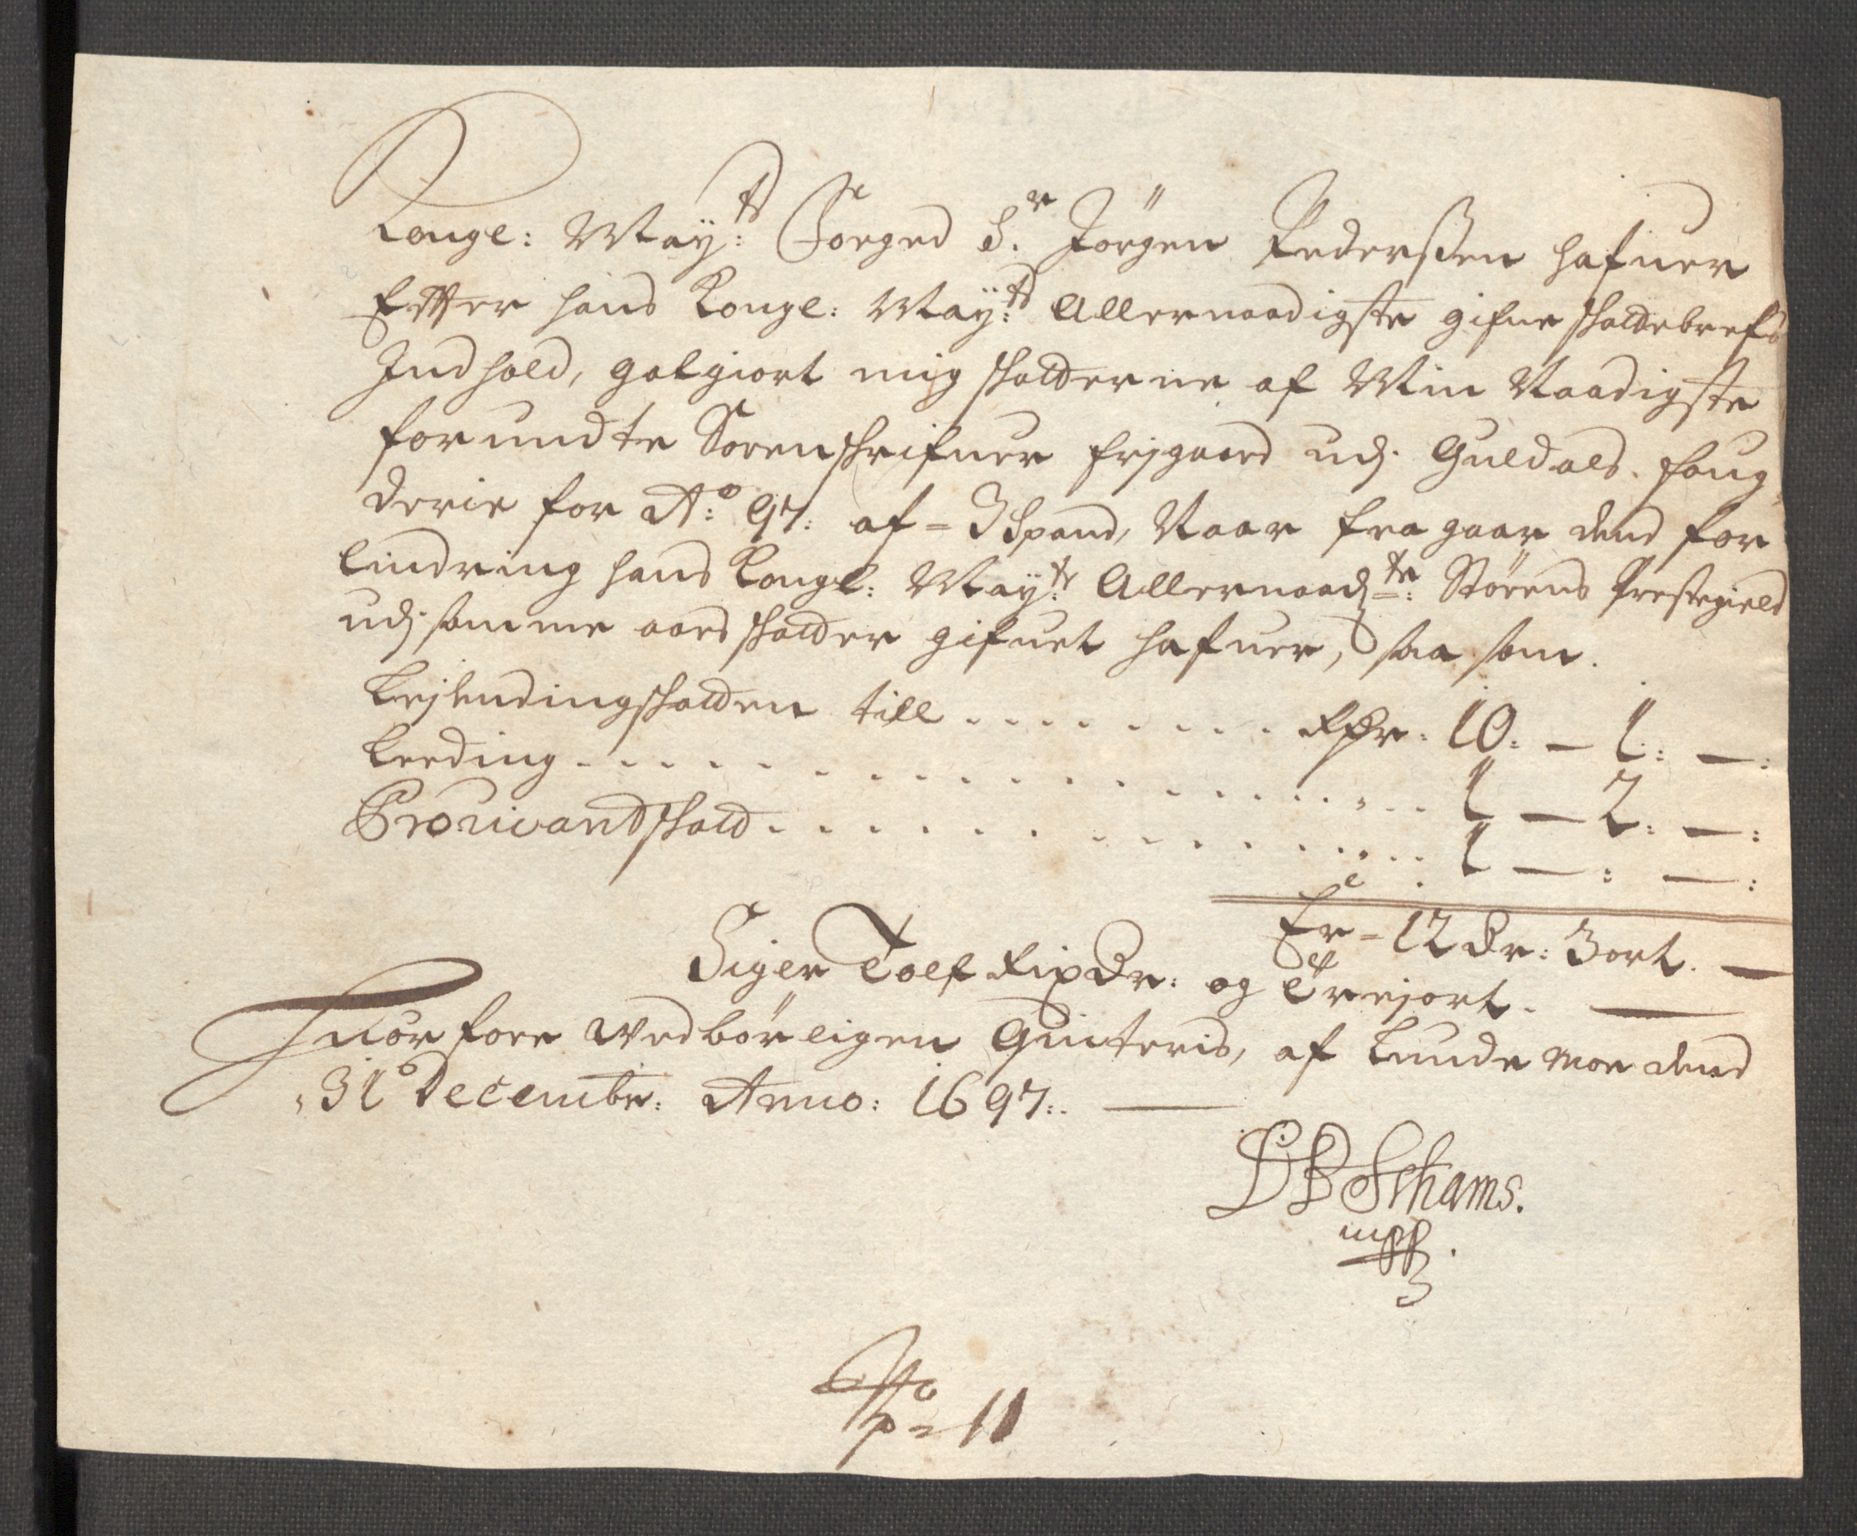 Kongl: May:ts Foeged S:r Jörgen Pederßen hafuer
Efter hans Kongl: May:ts Allernaadigste gifne skattebrefs
Indhold, gotgiort mig skatterne af Min Naadigste
forundte Sorenskrifuer frjgaard udj Guldals foug
derie for A:o 97: af = 3 Spand, Naar fra gaar dend for
lindring hans Kongl: May:ts Allernaad:ste Störens Prestegield
udj samme aars skatter gifuet hafuer, saa som.
Lejlendingskatten till ........ Rdr: 10: — 1: —:
Leeding ................ 1 — 2: —:
Prouiantskatt ................ 1 — : — :
Er = 12 Dr: 3 ort. —
Siger Tolf Rixdr: og Treiort. —
Huor fore wedbörligen Quiteris, af Lundemoe dend
31 Decembr: Anno: 1697:. —
Schams.
mpp.
No = 11